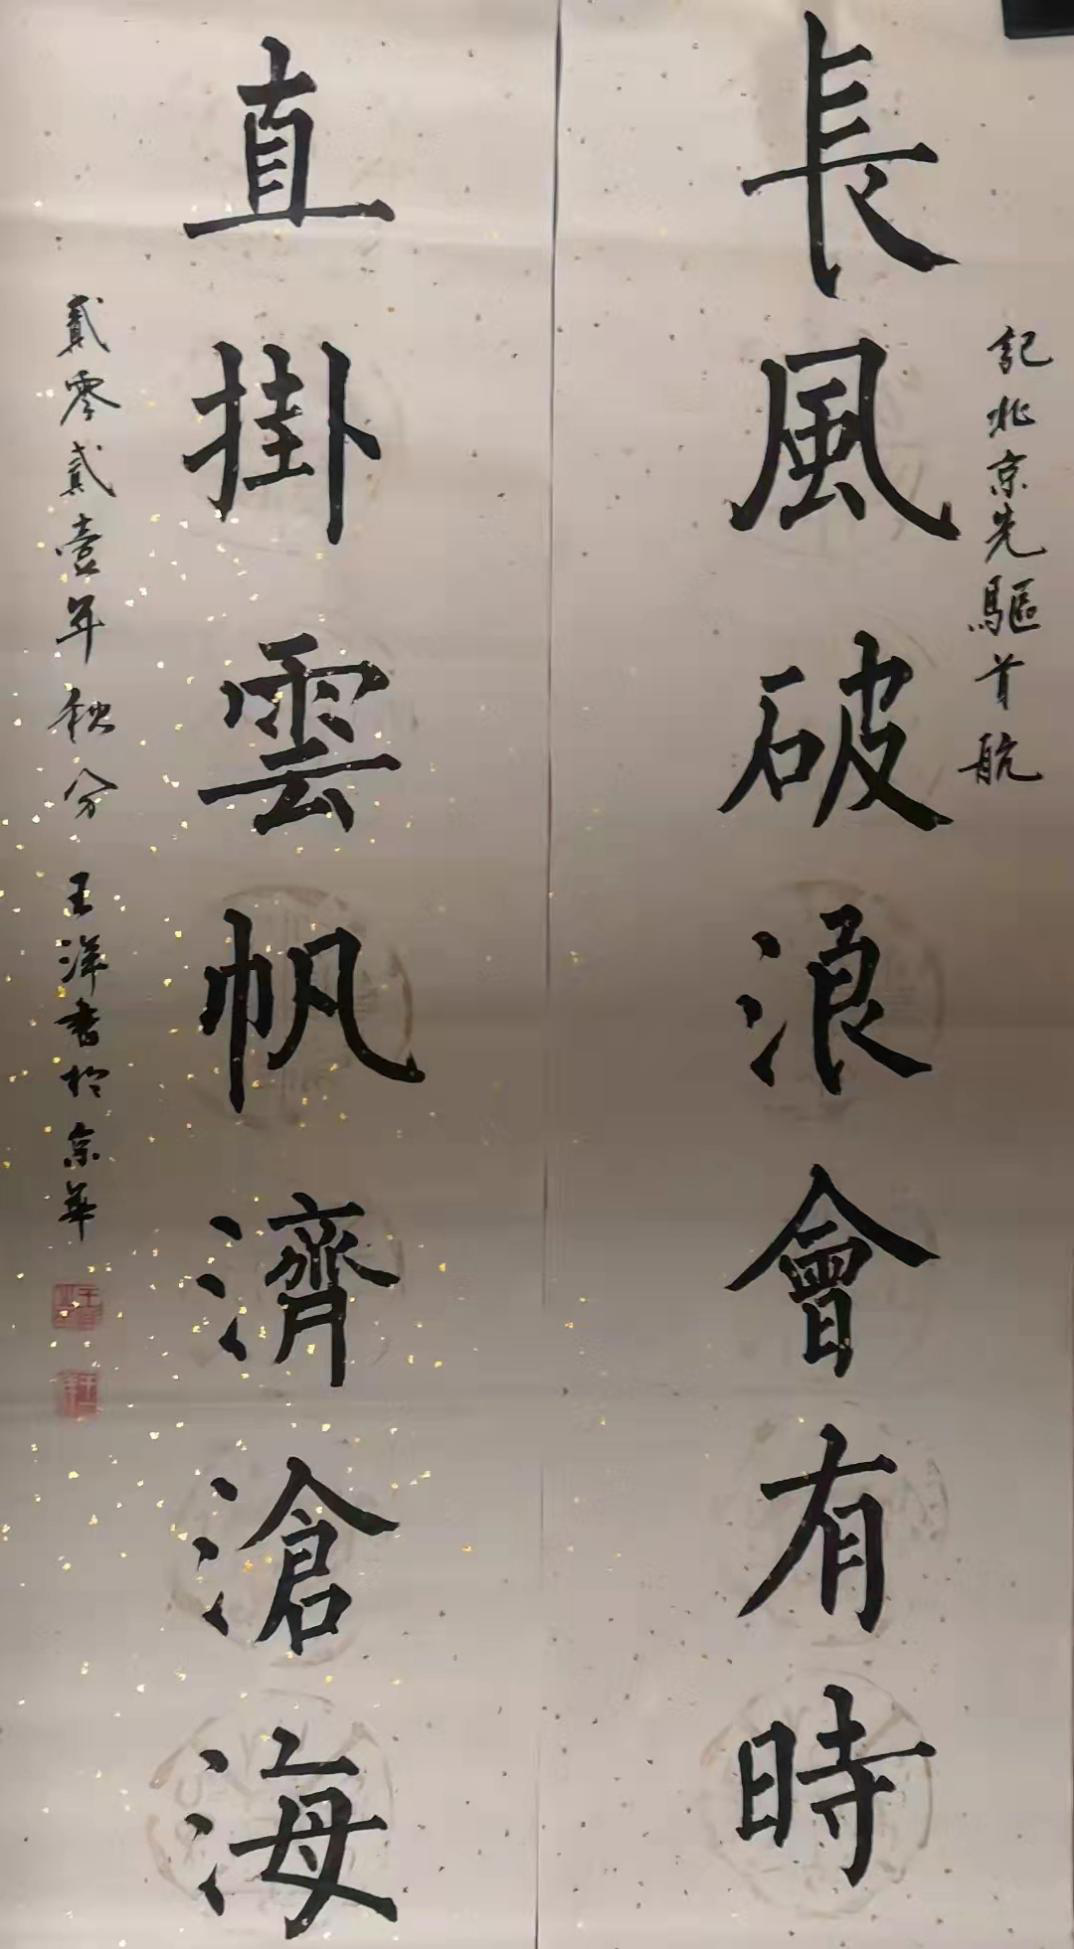 記北京先驅首航
長風破浪會有時
直掛雲帆濟滄海
貳零貳壹年秋分 王洋書於京華